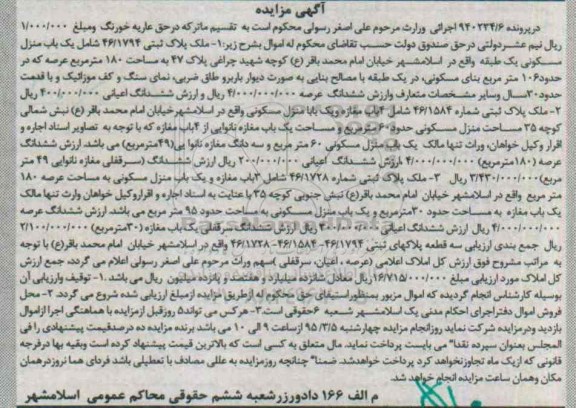 آگهی مزایده
درپرونده ۹۴۰۲۳۴/۶ اجرائی وراث مرحوم علی اصغر رسولی محکوم است به تقسیم ماترکه درحق عاریه خورنگ ومبلغ ۱/۰۰۰/۰۰۰
ریال نیم عشردولتی درحق صندوق دولت حسب تقاضای محکوم له اموال بشرح زیر:۱- ملک پلاک ثبتی ۴۶/۱۷۹۴ شامل یک باب منزل
مسکونی یک طبقه واقع در اسلامشهر خیابان امام محمد باقر (ع) کوچه شهید چراغی پلاک ۴۷ به مساحت ۱۸۰ مترمربع عرصه که در
حدود۱۰۶ متر مربع بنای مسکونی، در یک طبقه با مصالح بنایی به صورت دیوار باربرو طاق ضربی، نمای سنگ و کف موزائیک و با قدمت
حدود۳۰سال وسایر مشخصات متعارف وارزش ششدانگ عرصه ۴/۰۰۰/۰۰۰/۰۰۰ ریال و ارزش ششدانگ اعیانی ۴۰۰/۰۰۰/۰۰۰ ریال
۲- ملک پلاک ثبتی شماره ۴۶/۱۵۸۴ شامل ۴باب مغازه ویک باب منزل مسکونی واقع در اسلامشهر خیابان امام محمد باقر (ع) نبش شمالی
کوچه ۳۵ مساحت منزل مسکونی حدود ۶۰مترمربع و مساحت یک باب مغازه نانوایی از ۴باب مغازه که با توجه به تصاویر اسناد اجاره و
اقرار وکیل خواهان، وراث تنها مالک یک باب منزل مسکونی ۶۰ متر مربع و سه دانگ مغازه نانوایی(۴۹مترمربع) می باشد ارزش ششدانگ
عرصه (۱۸۰مترمربع) ۴/۰۰۰/۰۰۰/۰۰۰ ،ارزش ششدانگ اعیانی ۲۰۰/۰۰۰/۰۰۰ ریال ارزش ششدانگ (سرقفلی مغازه نانوایی ۴۹ متر
مربع)۳/۴۳۰/۰۰۰/۰۰۰ ریال ۳- ملک پلاک ثبتی شماره ۴۶/۱۷۲۸ شامل ۳باب مغازه و یک باب منزل مسکونی به مساحت عرصه ۱۸۰
متر مربع واقع در اسلامشهر خیابان امام محمد باقر(ع) نبش جنوبی کوچه ۳۵ با عنایت به اسناد اجاره و اقراروکیل خواهان وارث تنها مالک
یک باب مغازه به مساحت حدود ۳۰مترمربع و یک باب منزل مسکونی به مساحت حدود ۹۵ متر مربع می باشد. ارزش ششدانگ عرصه
۴/۰۰۰/۰۰۰/۰۰۰ ریال ارزش ششدانگ اعیانی ریال ارزش ششدانگ سرقفلی یک باب مغازه (۳۰مترمربع) ۲/۱۰۰/۰۰۰/۰۰۰
ریال جمع بندی ارزیابی سه قطعه پلاکهای ثبتی ۴۶/۱۷۹۴-۴۶/۱۵۸۴-۴۶/۱۷۲۸ واقع در اسلامشهر خیابان امام محمد باقر(ع) با توجه
به مراتب مشروح فوق ارزش کل املاک اعلامی (عرصه ، اعیان، سرقفلی )سهم وراث مرحوم علی اصغر رسولی اعلام می گردد، جمع ارزش
کل املاک مورد ارزیابی مبلغ ۱۶/۷۱۵/۰۰۰/۰۰۰ریال معادل شانزده میلیارد و هفتصد و پانزده میلیون ریال می باشد. ۱- توقیف وارزیابی آن
بوسیله کارشناس انجام گردیده که اموال مزبور بمنظوراستیفای حق محکوم له ازطریق مزایده ازمبلغ ارزیابی شده شروع می گردد. ۲- محل
فروش اموال دفتراجرای احکام مدنی یک اسلامشهر شعبه ۶حقوقی است.۳- هرکس می تواند۵ روزقبل ازمزایده با هماهنگی اجرا ازاموال
بازدید ودرمزایده شرکت نماید روزانجام مزایده چهارشنبه ۹۵/۳/۵ ازساعت ۹ الی ۱۰ می باشد برنده مزایده ده درصدقیمت پیشنهادی را فی
المجلس بعنوان سپرده نقدا" می بایست پرداخت نماید. مال متعلق به کسی است که بالاترین قیمت پیشنهاد کرده است وبقیه بها درفرجه
قانونی که ازیک ماه تجاوزنخواهد کرد پرداخت خواهدشد. ضمنا" چنانچه روزمزایده به عللی مصادف با تعطیلی باشد فردای همان روزدرهمان
مکان وهمان ساعت مزایده انجام خواهد شد.
م الف ۱۶۶ دادورزشعبه ششم حقوقی محاکم عمومی اسلامشهر